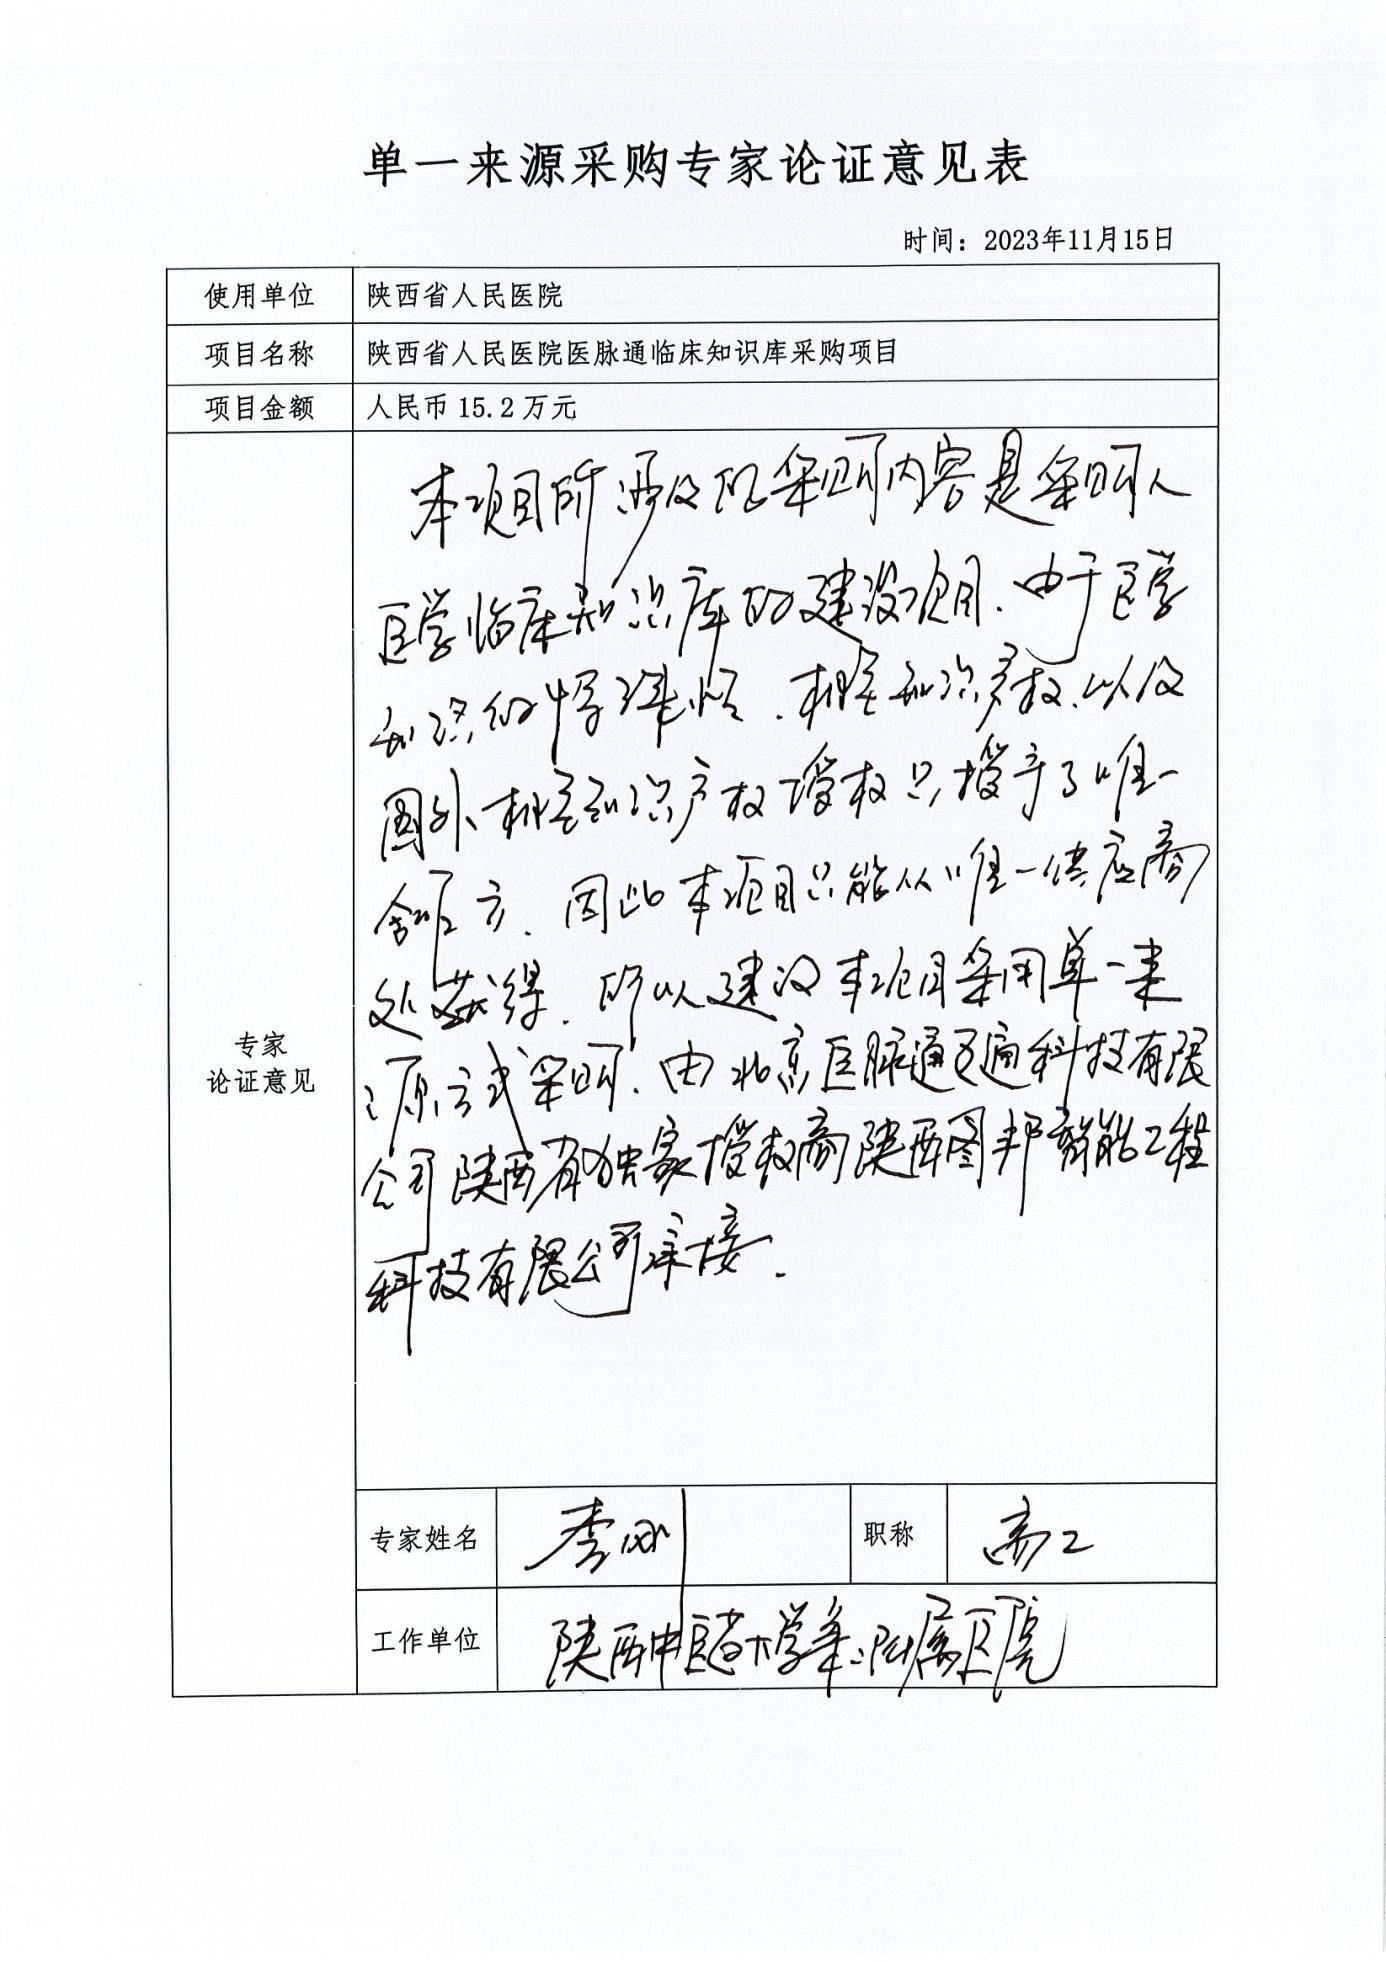 单一来源采购专家论证意见表
时间：2023年11月15日
使用单位 陕西省人民医院
项目名称 陕西省人民医院医脉通临床知识库采购项目
项目金额 人民币 15.2 万元
专家
论证意见
本项目所涉及的采购内容是采购人
医学临床知识库的建设项目.由于医学
知识的特殊性.相关知识产权.以及
国外相关知识产权授权只授予了唯一
合作方.因此本项目只能从唯一供应商
处获得.所以建议本项目采用单一来
源方式采购.由北京医脉通 科技有限
公司陕西省独家授权商陕西图邦 能工程
科技有限公司承接.
专家姓名 李刚 职称 高工
工作单位 陕西中医药大学第二附属医院